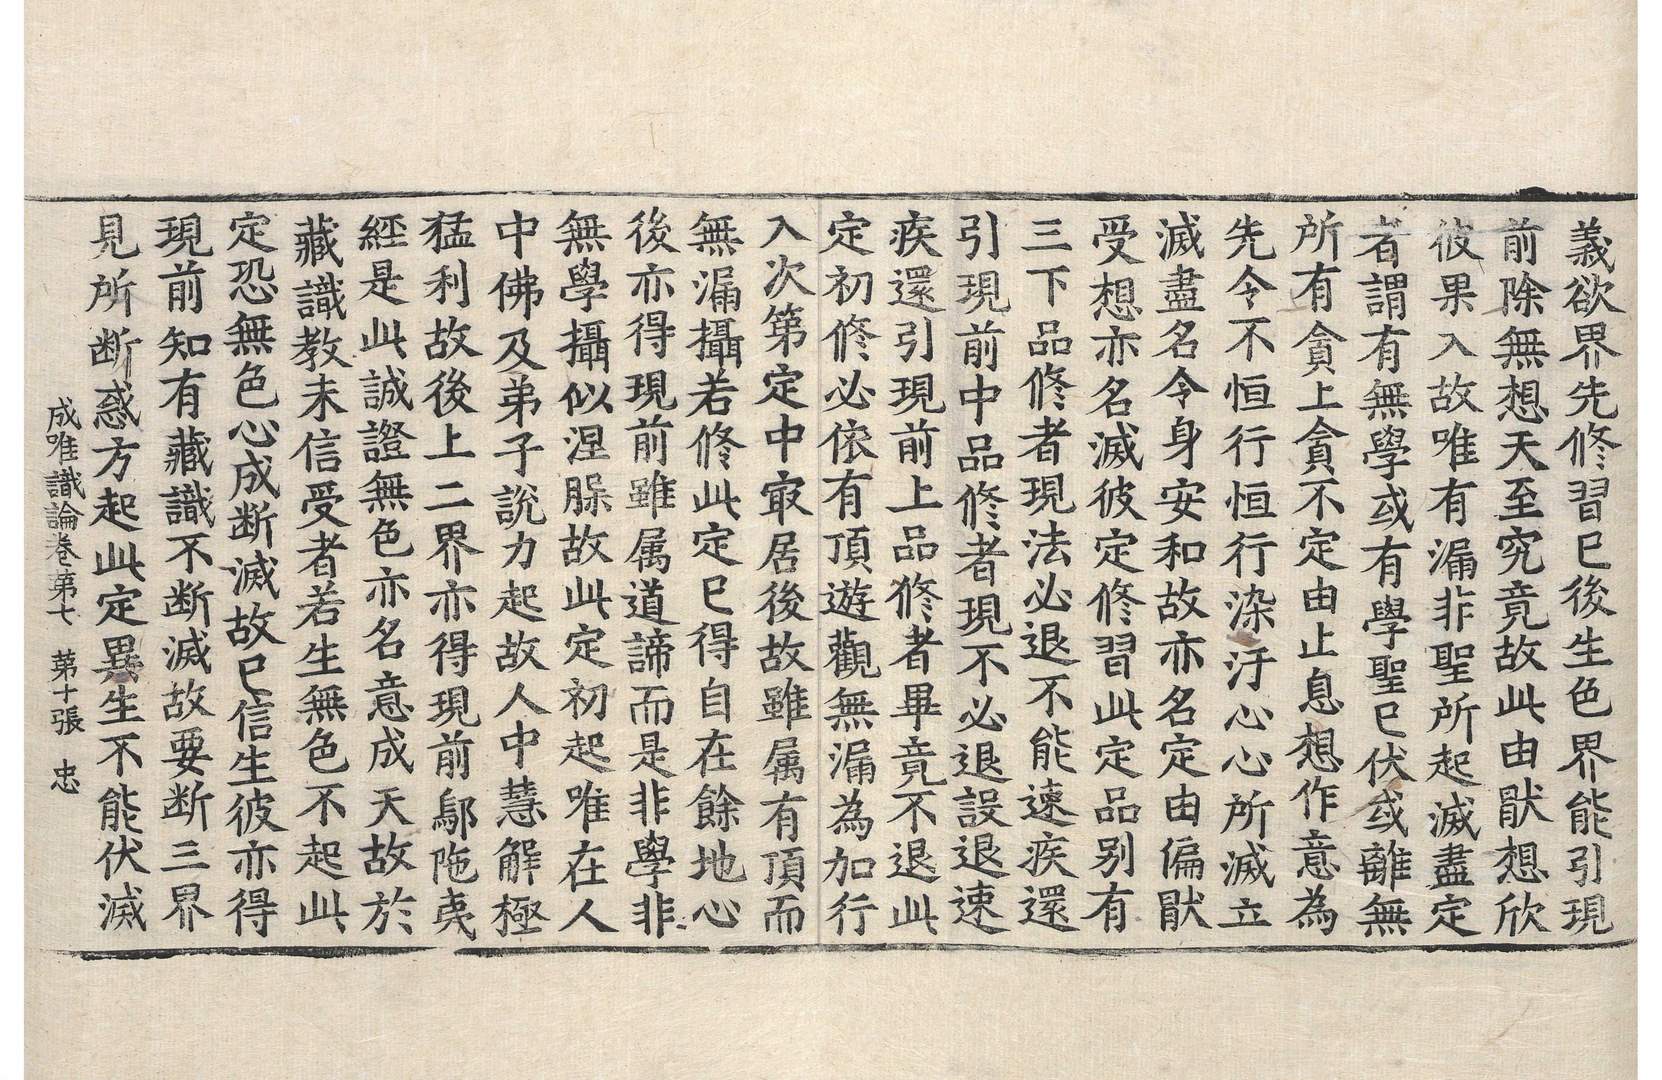 義欲界先修習已後生色界能引現
前除無想天至究竟故此由猒想欣
彼果入故唯有漏非聖所起滅盡定
者謂有無學或有學聖已伏或離無
所有貪上貪不定由止息想作意為
先令不恒行恒行染汙心心所滅立
滅盡名令身安和故亦名定由偏猒
受想亦名滅彼定修習此定品別有
三下品修者現法必退不能速疾還
引現前中品修者現不必退設退速
疾還引現前上品修者畢竟不退此
定初修必依有頂遊觀無漏為加行
入次第定中㝡居後故雖属有頂而
無漏攝若修此定已得自在餘地心
後亦得現前雖属道諦而是非學非
無學攝似涅槃故此定初起唯在人
中佛及弟子說力起故人中慧解極
猛利故後上二界亦得現前鄔陁夷
經是此誠證無色亦名意成天故於
藏識教未信受者若生無色不起此
定恐無色心成断滅故已信生彼亦得
現前知有藏識不断滅故要断三界
見所断惑方起此定異生不能伏滅
成唯識論卷第七　第十張　忠